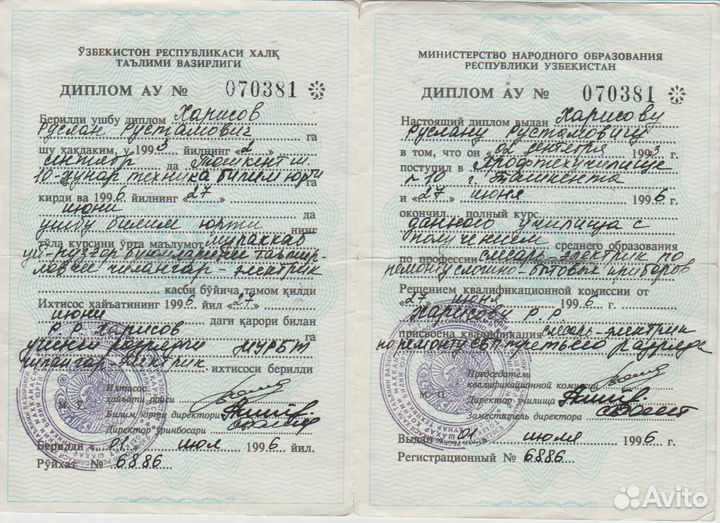 ЎЗБЕКИСТОН РЕСПУБЛИКАСИ ХАЛҚ
ТАЪЛИМИ ВАЗИРЛИГИ
ДИПЛОМ АУ № 070381
Берилди ушбу диплом Харисов
Руслан Рустамович га
шу ҳақдаким, у 1993 йилнинг «2»
сентябр да Тошкент ш.
10-ҳунар техника билим юрти га
кирди ва 1996 йилнинг «27»
июни да
ушбу билим юрти нинг
тўла курсини ўрта маълумот мураккаб
уй-рўзғор
чилангар-электрик
касби бўйича тамом қилди
Ихтисос ҳайъатининг 1996 йил «27»
июни даги қарори билан
Р.Р. Харисов
чилангар электрик ихтисоси берилди
Ихтисос
ҳайъати раиси
М. Ў.
Билим юрти директори
Директор ўринбосари
Берилди «01» июл 1996 йил.
Рўйхат № 6886
МИНИСТЕРСТВО НАРОДНОГО ОБРАЗОВАНИЯ
РЕСПУБЛИКИ УЗБЕКИСТАН
ДИПЛОМ АУ № 070381
Настоящий диплом выдан Харисову
Руслану Рустамовичу
в том, что он «02» сентября 1993 г.
поступил в Профтехучилище
№10 г. Ташкента
и «27» июня 1996 г.
окончил полный курс
данного училища с
получением среднего образования
по профессии слесарь-электрик по
ремонту сложно-бытовых приборов
Решением квалификационной комиссии от
«27» июня 1996 г.
Харисову Р Р
присвоена квалификация слесарь-электрик
по ремонту СБП третьего разряда
Председатель
квалификационной комиссии
М. П.
Директор училища
Заместитель директора
Выдан «01» июля 1996 г.
Регистрационный № 6886
Avito